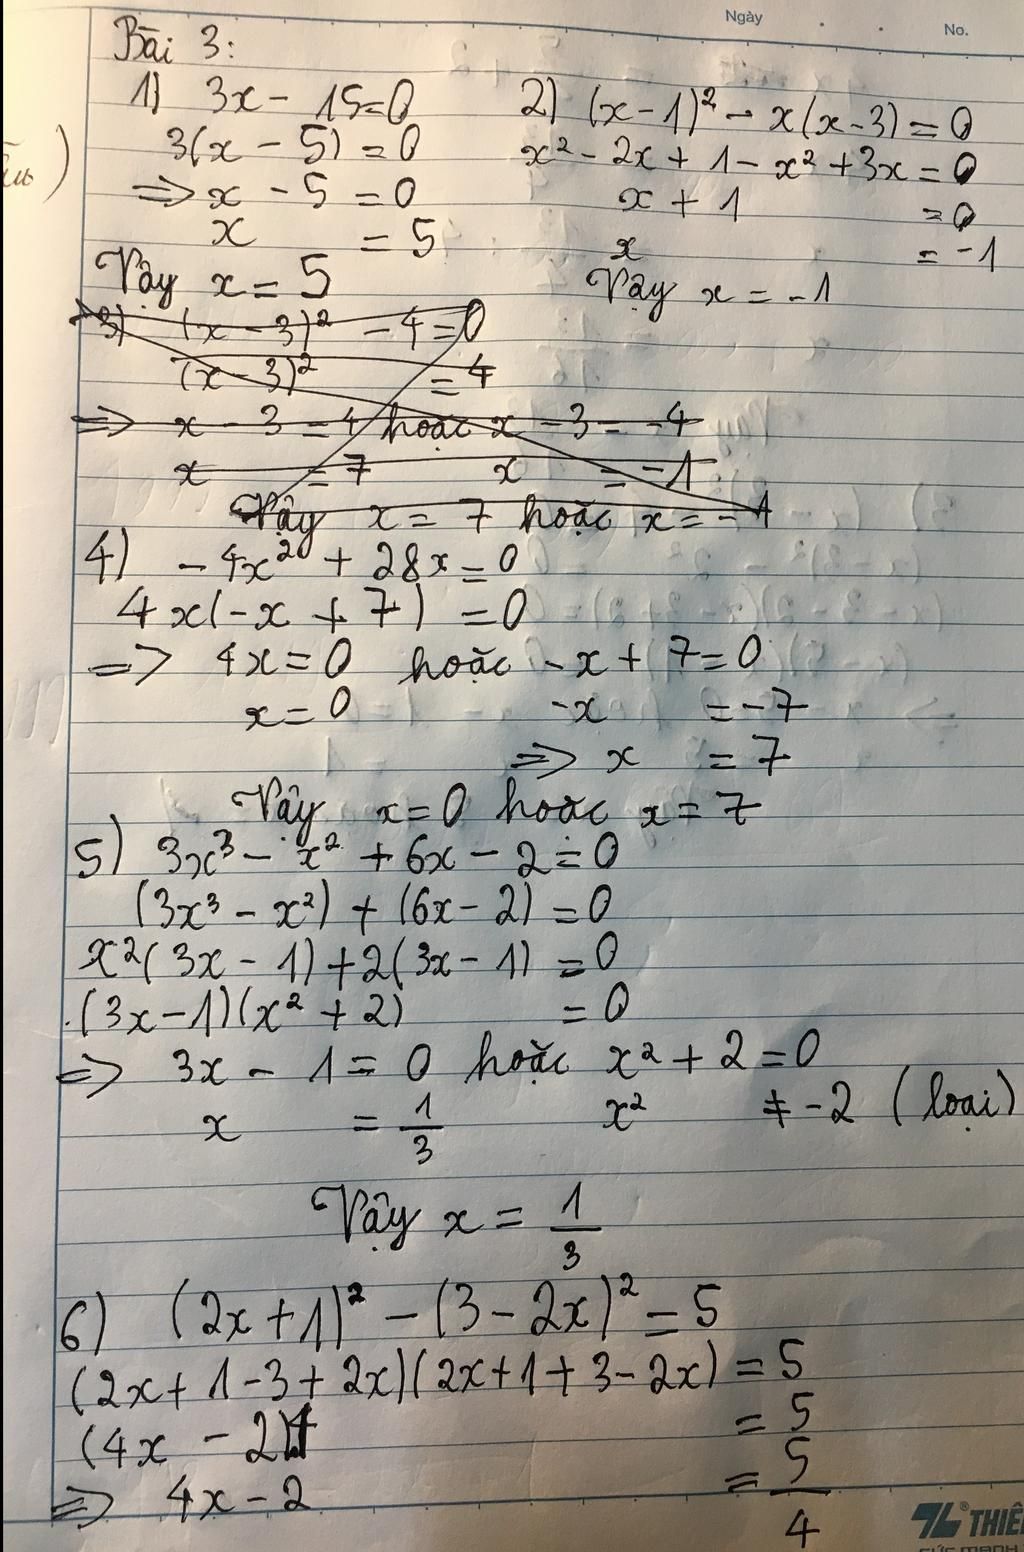 Ngày
No.
Bài 3:
1) 3x - 15 = 0
3(x - 5) = 0
=> x - 5 = 0
x = 5
Vậy x = 5
2) (x - 1)² - x(x - 3) = 0
x² - 2x + 1 - x² + 3x = 0
x + 1 = 0
x = -1
Vậy x = -1
3) (x - 3)² - 4 = 0
(x - 3)² = 4
=> x - 3 = 4 hoặc x - 3 = -4
x = 7 x = -1
Vậy x = 7 hoặc x = -1
4) - 4x² + 28x = 0
4x(-x + 7) = 0
=> 4x = 0 hoặc -x + 7 = 0
x = 0 -x = -7
=> x = 7
Vậy x = 0 hoặc x = 7
5) 3x³ - x² + 6x - 2 = 0
(3x³ - x²) + (6x - 2) = 0
x²(3x - 1) + 2(3x - 1) = 0
(3x - 1)(x² + 2) = 0
=> 3x - 1 = 0 hoặc x² + 2 = 0
x = 1/3 x² ≠ -2 (loại)
Vậy x = 1/3
6) (2x + 1)² - (3 - 2x)² = 5
(2x + 1 - 3 + 2x)(2x + 1 + 3 - 2x) = 5
(4x - 2)4 = 5
=> 4x - 2 = 5/4
THIÊ